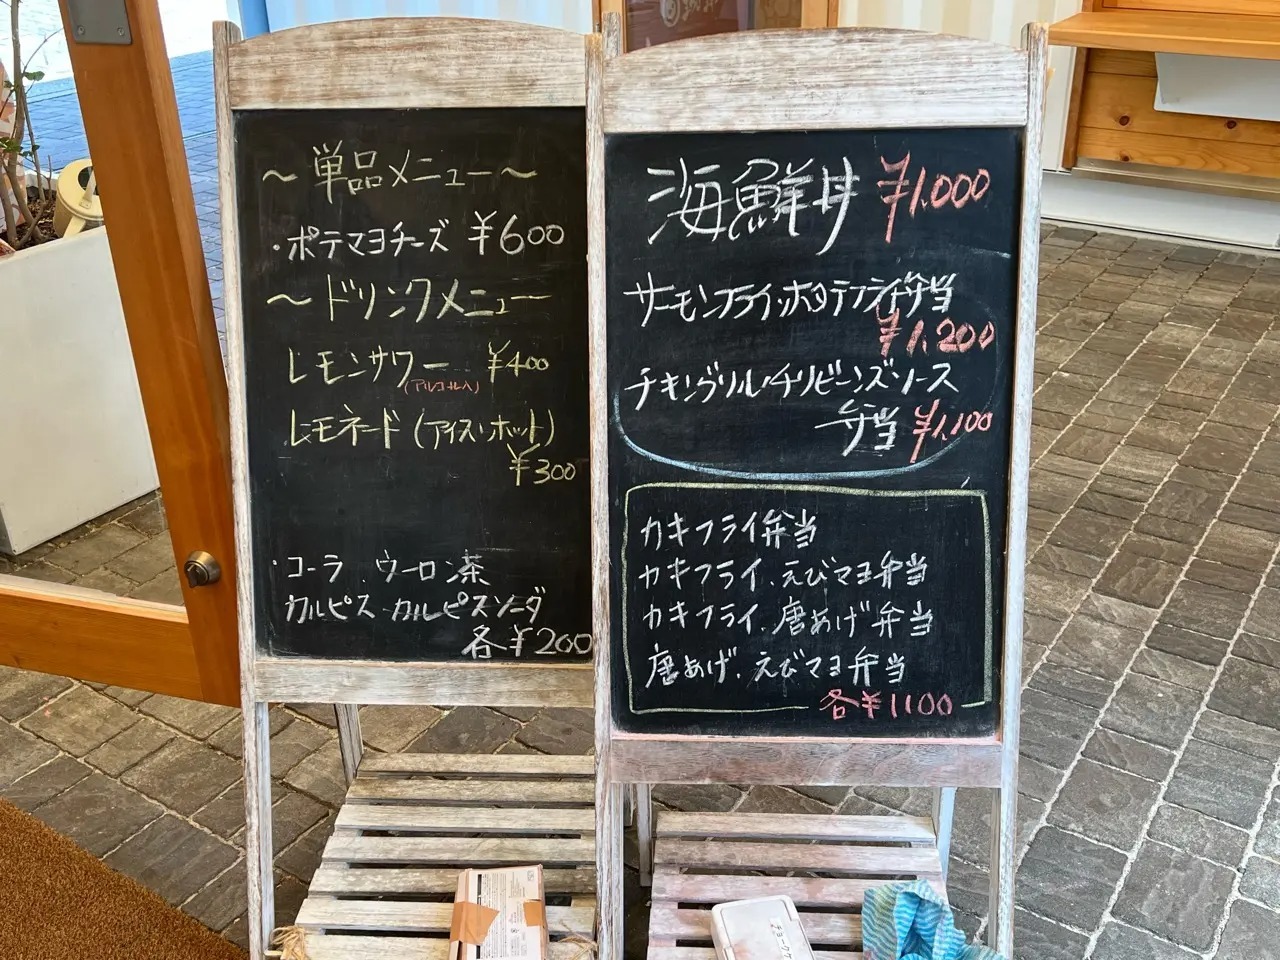 ～単品メニュー～
・ポテマヨチーズ ¥600
～ドリンクメニュー
レモンサワー ¥400
(アルコール入)
レモネード(アイス・ホット)
¥300
・コーラ、ウーロン茶
カルピス カルピスソーダ
各¥200
海鮮丼 ¥1,000
サーモンフライ・ホタテフライ弁当
¥1,200
チキングリル・チリビーンズソース
弁当 ¥1,100
カキフライ弁当
カキフライ、えびマヨ弁当
カキフライ、唐あげ弁当
唐あげ、えびマヨ弁当
各¥1100